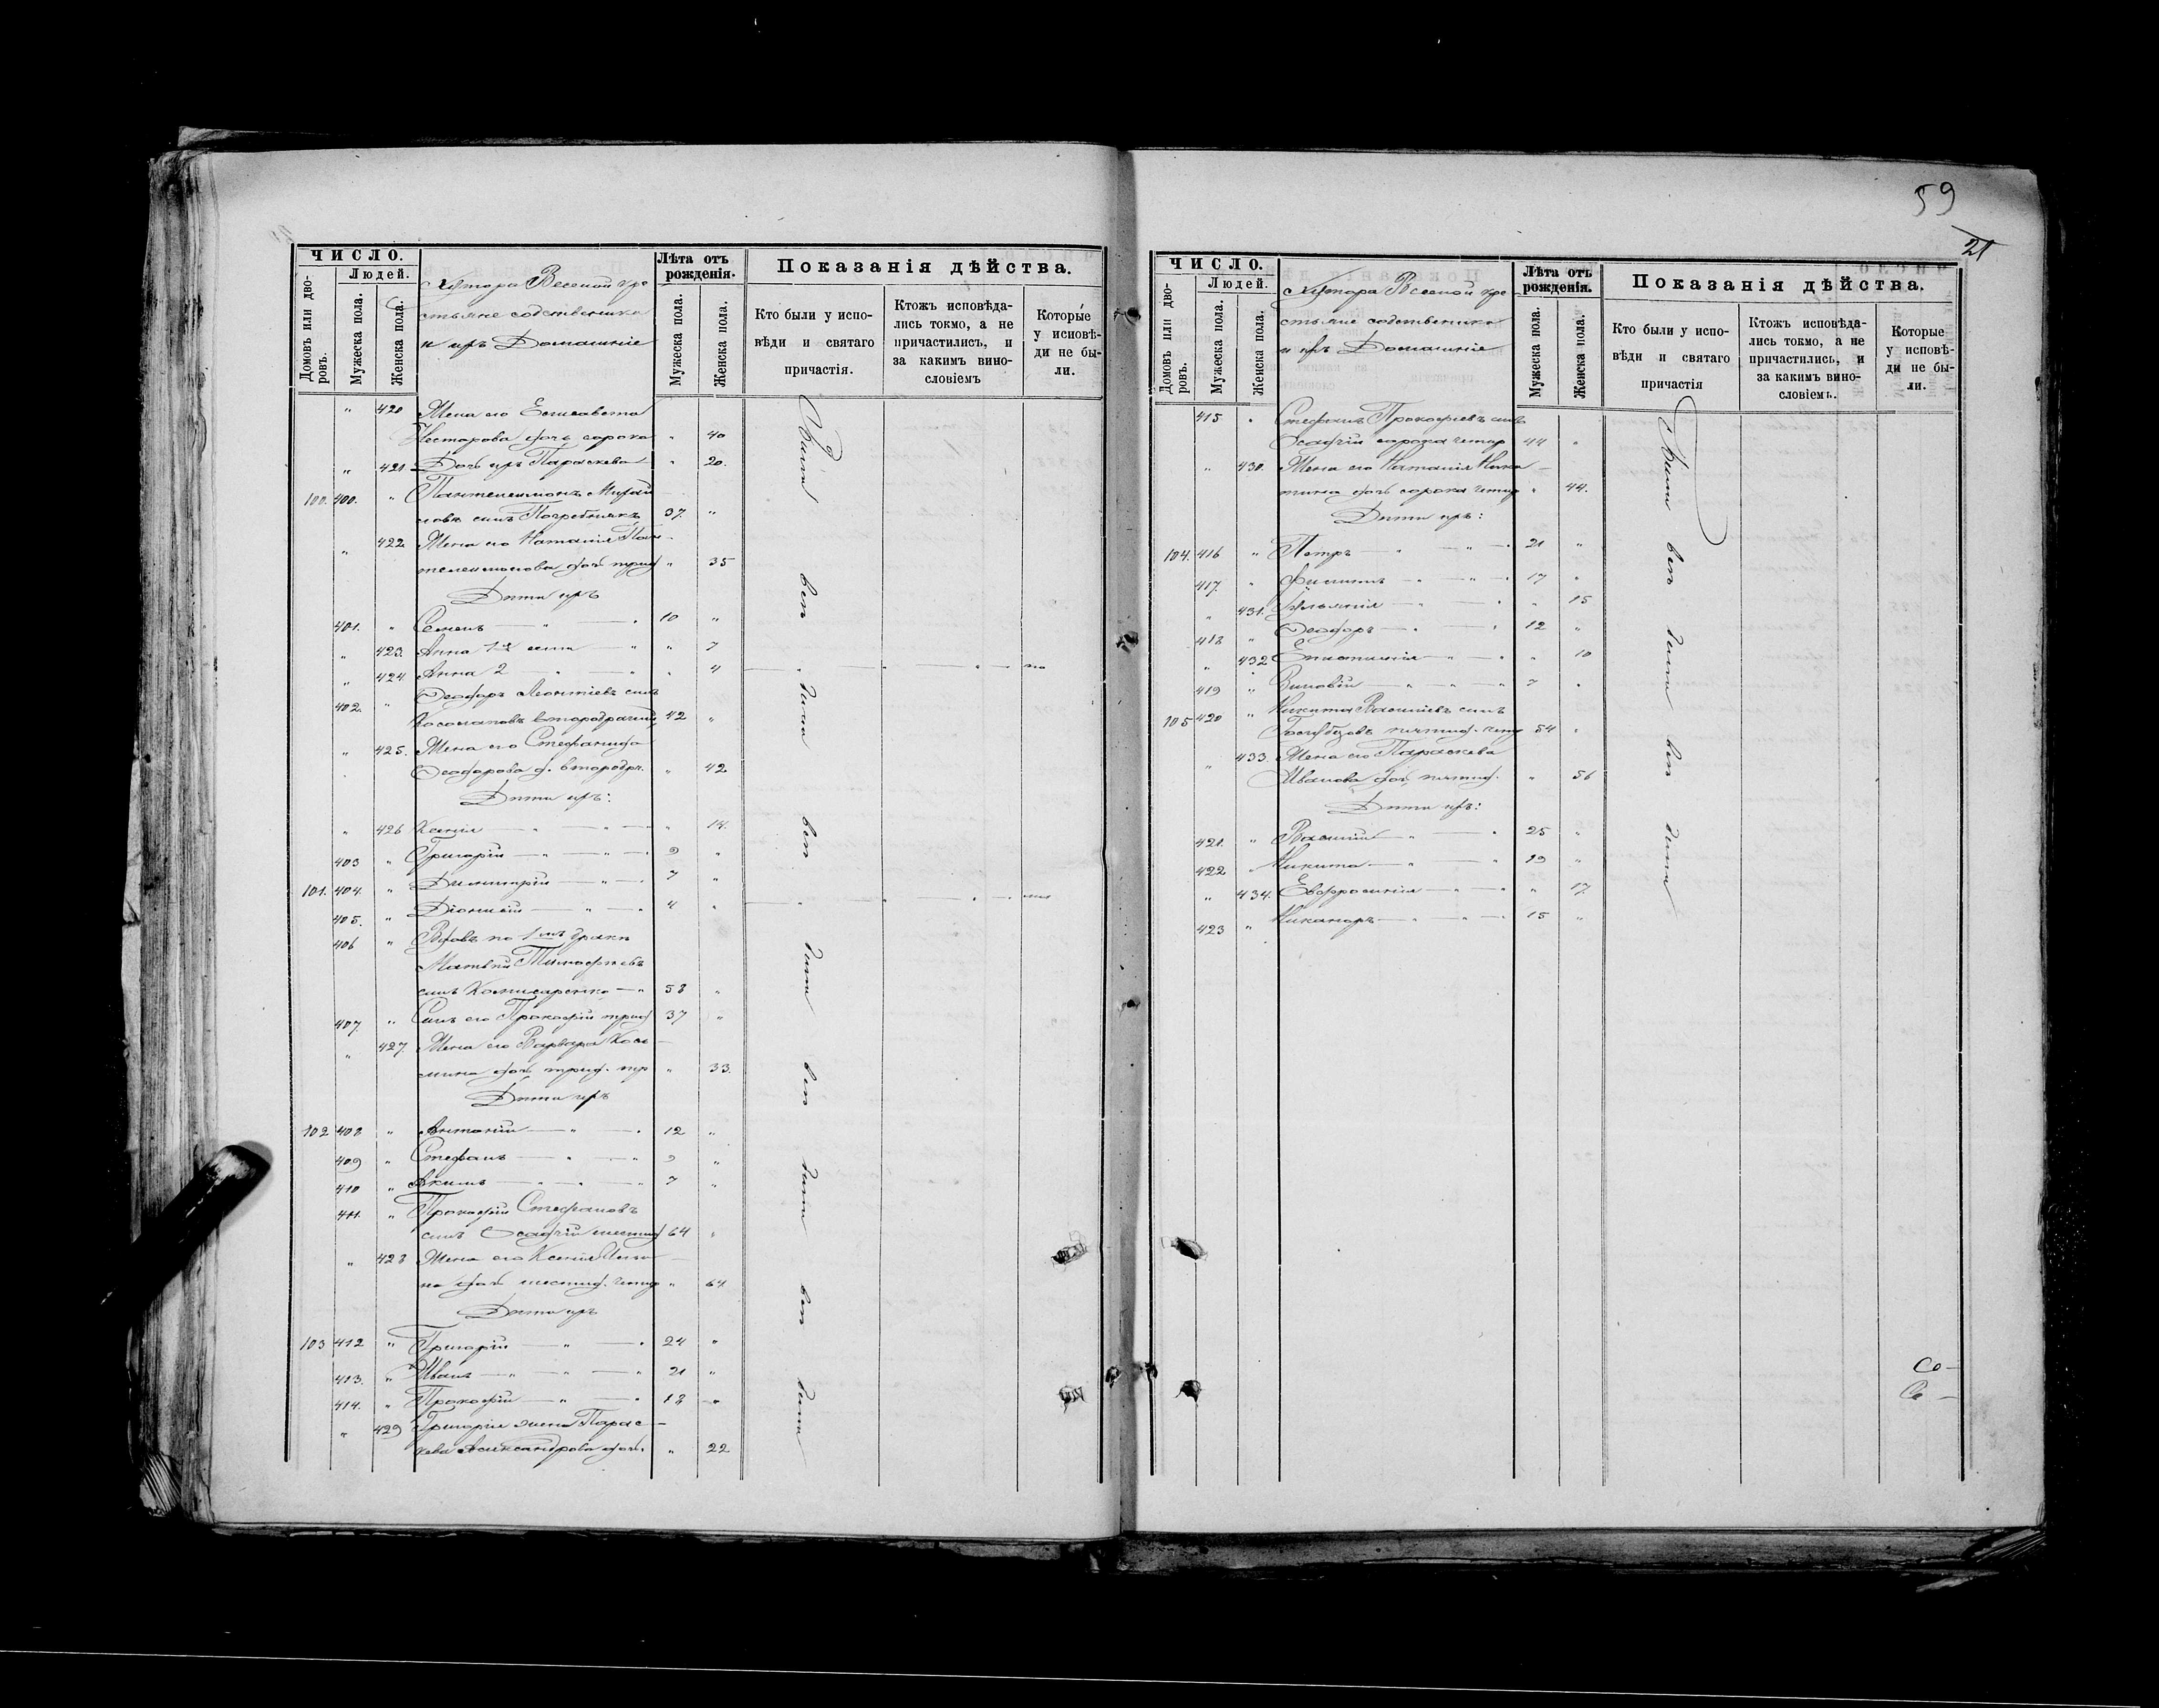 59
21
ЧИСЛО.
Людей.
Домовъ или дворовъ.
Мужеска пола.
Женска пола.
Хутора Веселой кре
стьяне собственики
и ихъ Домашніе
Лѣта отъ рожденія.
Мужеска пола.
Женска пола.
Показанія дѣйства.
Кто были у испо-
вѣди и святаго
причастія.
Ктожъ исповѣда-
лись токмо, а не
причастились, и
за какимъ вино-
словіемъ
Которые
у исповѣ-
ди не бы-
ли.
" 420 Жена его Елисавета
Несторова дочь сорока " 40
" 421 Дочь ихъ Параскева " 20.
100. 400. " Пантелеимонъ Михаи
ловъ сынъ Погребнякъ 37. "
" 422 Жена его Наталія Пан-
телеимонова дочь трид " 35
Дѣти ихъ
401. " Семенъ — " — " 10 "
" 423. Анна 1-я — " " 7
" 424 Анна 2 — " — " " 4
402. " Ѳеодоръ Леонтіевъ сынъ
второбрачный 42 "
" 425. Жена его Стефанида
Ѳеодорова д. второбр. " 42
Дѣти ихъ:
" 426 Ксенія — " — " — " 14.
403 " Григорій — " — " — 9 "
101. 404. " Димитрій — " — 7 "
405. " Діонисій — " — " 4 "
406 " Вдовъ по 1мъ бракѣ
Матвѣй Тимофѣевъ
сынъ Комисаренко — " 58 "
407. " Сынъ его Прокофій трид 37 "
" 427. Жена его Варвара Кось-
мина дочь трид. тр " 33.
Дѣти ихъ
102 408 " Антоній — " — " 12 "
409 " Стефанъ — " — " 9 "
410 " Акимъ — " — " 7 "
411. " Прокофій Стефановъ
сынъ Осадчій шестид 64 "
" 428 Жена его Ксенія
на дочь шестид. четыр " 64
Дѣти ихъ
103 412 " Григорій — " — " 24 "
413. " Иванъ — " — " — " 21 "
414. " Прокофій — " — " 18 "
" 429 Григорія жена Парас-
кева Александрова дочь " 22
Были вси тіи вси тіи вси тіи вси тіи вси тіи
ЧИСЛО.
Людей.
Домовъ или дворовъ.
Мужеска пола.
Женска пола.
Хутора Веселой кре
стьяне собственики
и ихъ Домашніе
Лѣта отъ рожденія.
Мужеска пола.
Женска пола.
Показанія дѣйства.
Кто были у испо-
вѣди и святаго
причастія
Ктожъ исповѣда-
лись токмо, а не
причастились, и
за какимъ вино-
словіемъ.
Которые
у исповѣ-
ди не бы-
ли.
415 " Стефанъ Прокофіевъ сынъ
Осадчій сорока четыр 44 "
" 430. Жена его Наталія Ники-
тина дочь сорока четыр " 44.
Дѣти ихъ:
104. 416 " Петръ — " — " — " 21 "
417. " Филиппъ — " — " — " 17 "
" 431. — " — " " 15
418 " Ѳеодоръ — " — " 12 "
" 432 Епистимія — " — " " 10
419 " — " — " — " 7 "
105 420 " Никита Василіевъ сынъ
пятид. четыр 54 "
" 433. Жена его Параскева
Иванова дочь пятид. " 56
Дѣти ихъ:
421. " Василій — " — " 25 "
422 " Никита — " — " 19 "
" 434. Евфросинія — " — " " 17.
423 " Никаноръ — " — " — " 15 "